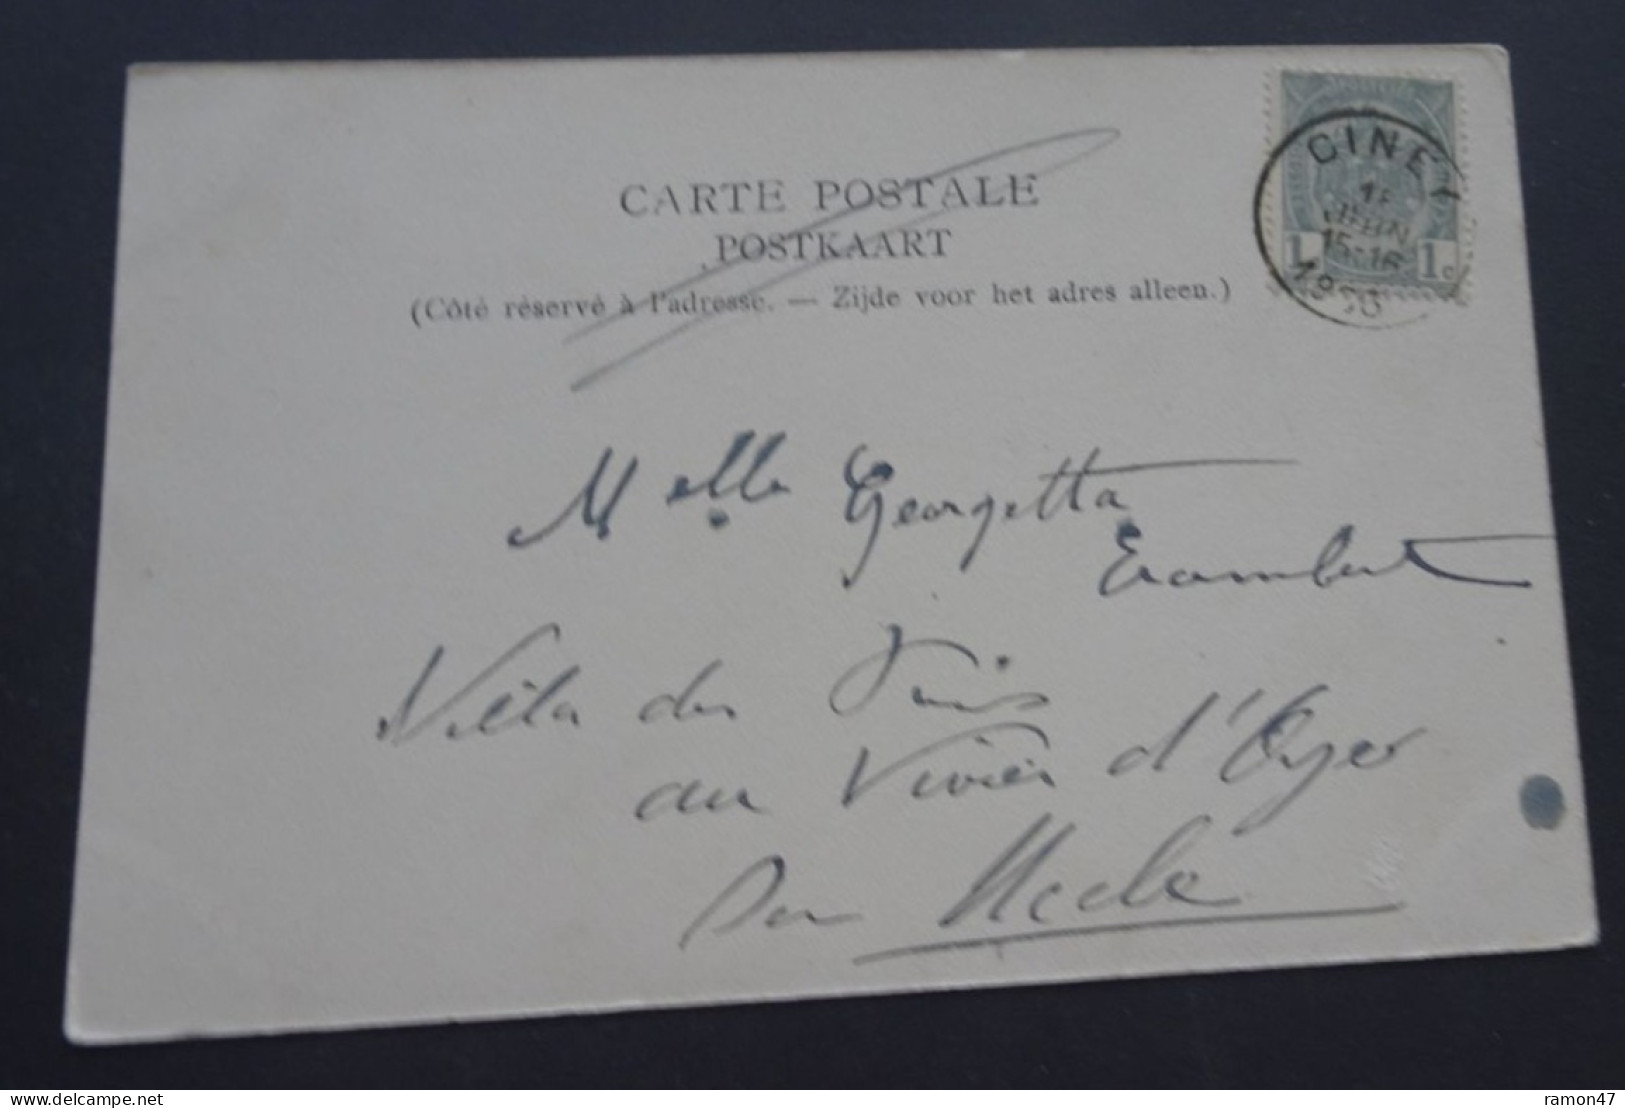 CARTE POSTALE
POSTKAART
(Côté réservé à l'adresse. — Zijde voor het adres alleen.)
CINEY
15-16
1 1c
Melle Georgette
Erambert
Villa des
au Vivier d'Oye
par Uccle
ramon47